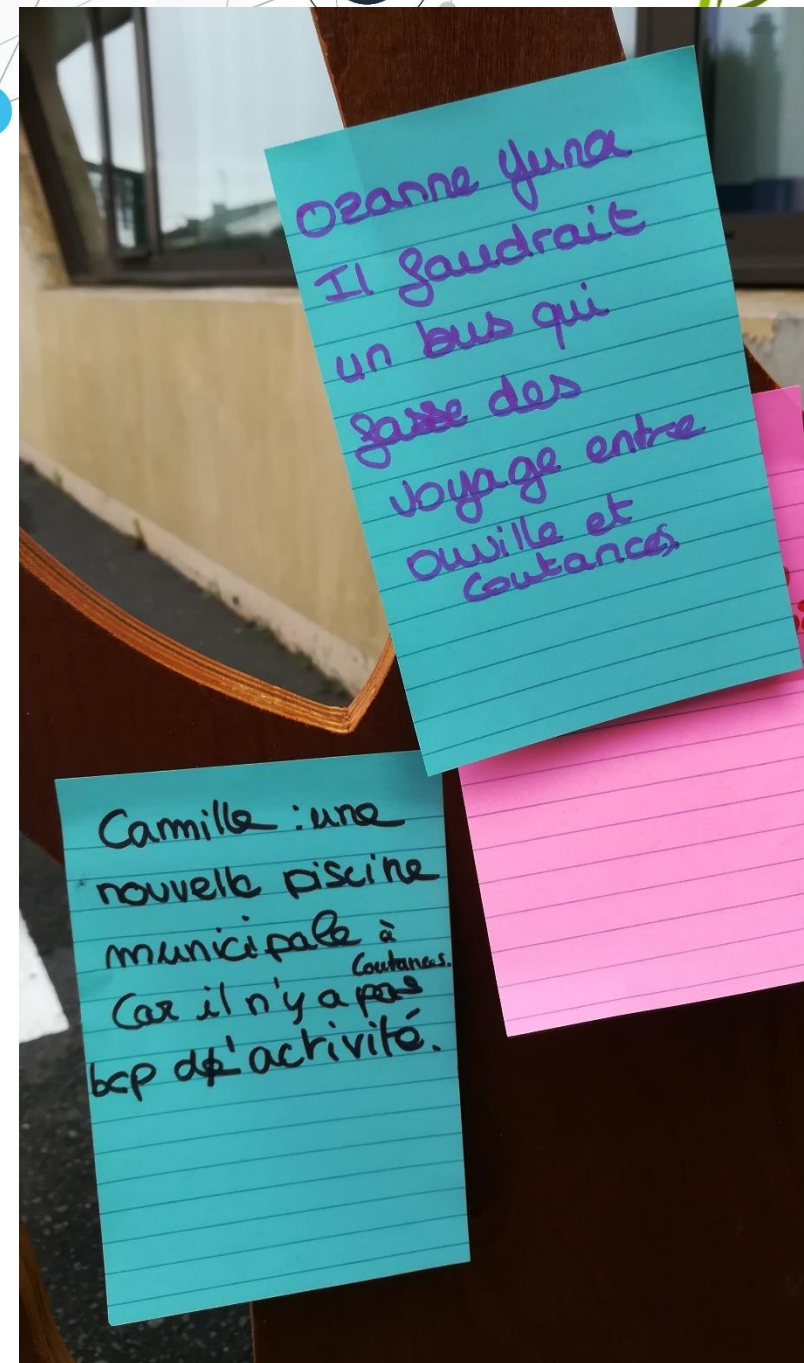 Ozanne Yuna
Il faudrait
un bus qui
fasse des
voyage entre
ouville et
Coutances.
Camille : une
nouvelle piscine
municipale à
Coutances.
Car il n'y a pas
bcp d'activité.